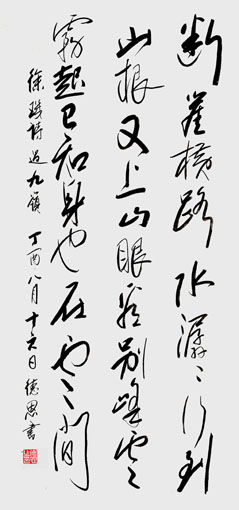 断崖横路水潺〻行到
山根又上山眼看别峰云
霧起已知身也在云间
徐璣詩过九嶺 丁酉八月十六日德思書